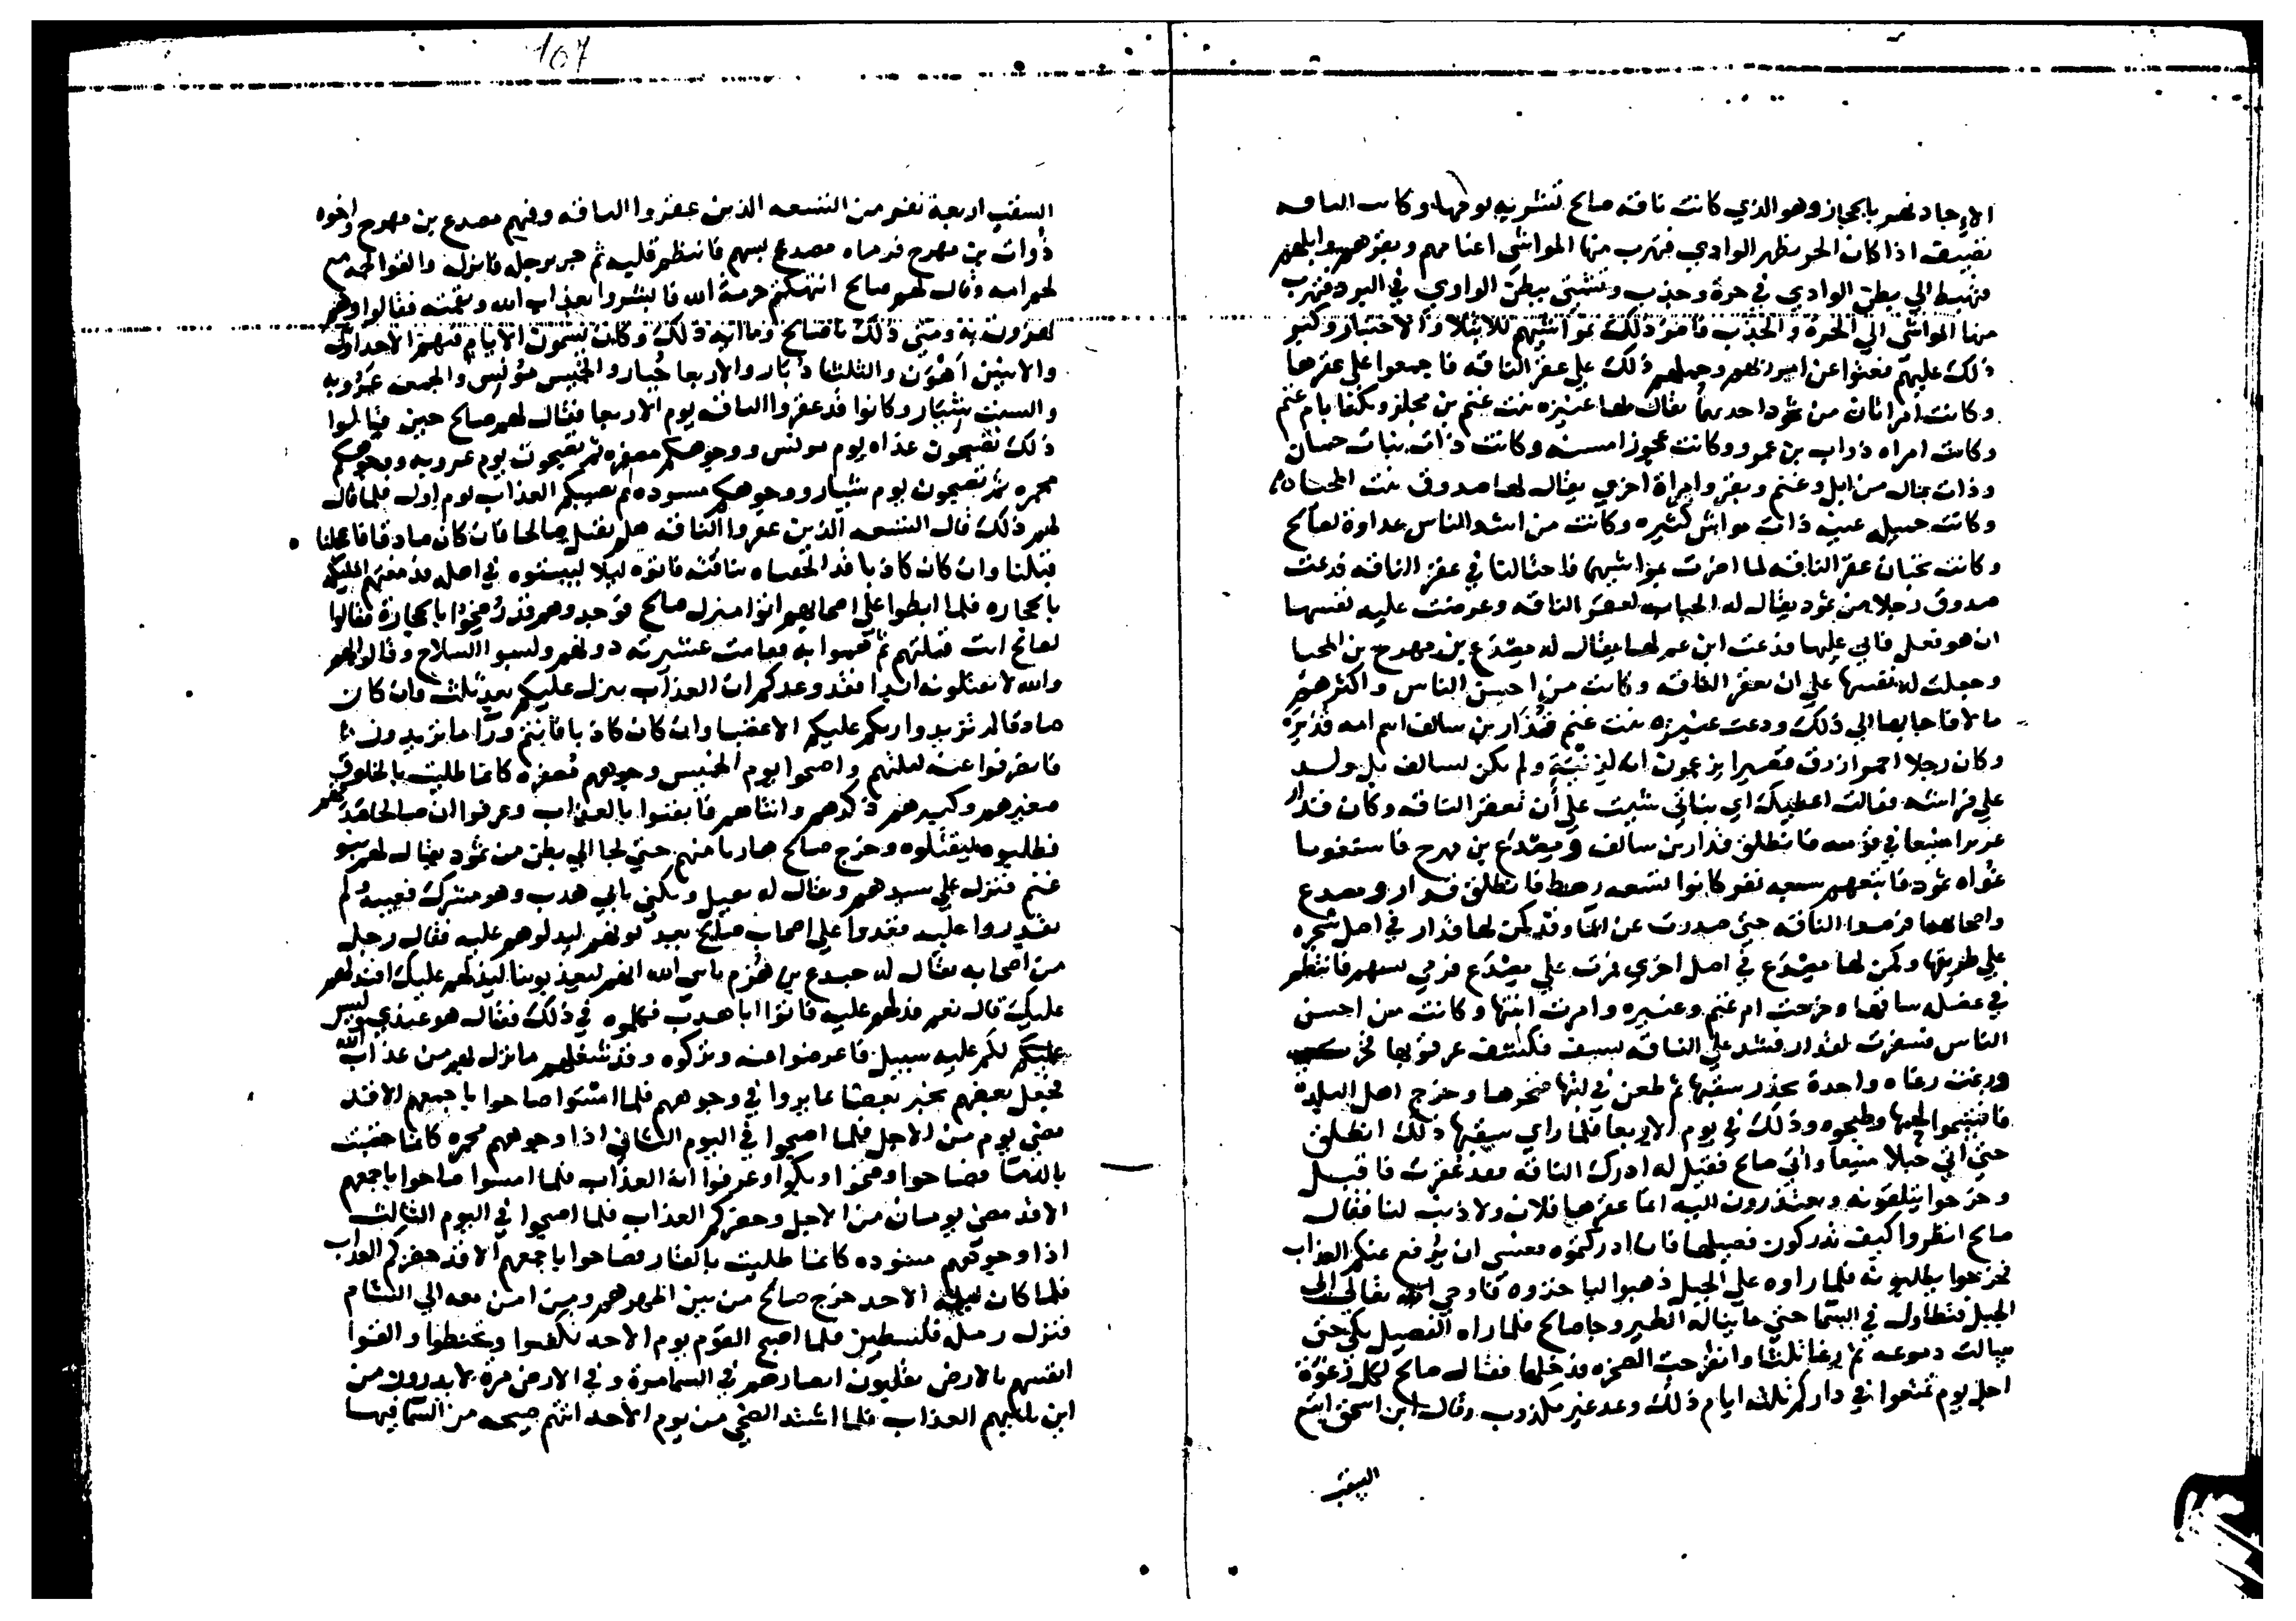 الارجا دنهم بالحجاز وهو الذي كانت ناقة صالح تشربه يومها وكانت الناقه
تضيف اذا كان الحر بظهر الوادي فتهرب منها المواشي اغنامهم وبقرهم وابلهم
فتهبط الي بطن الوادي في حره وجذب وتشتي ببطن الوادي في البرد فتهرب
منها المواشي الي الحره والجذب فاضر ذلك بمواشيهم للابتلا والاختبار وكبر
ذلك عليهم فعتوا عن امر ربهم وحملهم ذلك علي عقر الناقه فاجمعوا علي عقرها
وكانت امراتان من ثمود احديهما يقال لها عنيزه بنت غنم بن مجلز وتكنا بام غنم
وكانت امراه ذواب بن عمرو وكانت عجوزا مسنه وكانت ذات بنات حسان
وذات مال من ابل وغنم وبقر وامراة اخري يقال لها صدوف بنت المحيا
وكانت جميله غنيه ذات مواش كثيره وكانت من اشد الناس عداوة لصالح
وكانتا تحبان عقر الناقه لما اضرت بمواشيهما فاحتالتا في عقر الناقه فدعت
صدوف رجلا من ثمود يقال له الحباب لعقر الناقه وعرضت عليه نفسها
ان هو فعل فابي عليها فدعت ابن عم لها يقال له مصدع بن مهرج بن المحيا
وجعلت له نفسها علي ان يعقر الناقه وكانت من احسن الناس واكثرهم
مالا فاجابها الي ذلك ودعت عنيزه بنت غنم قدار بن سالف اسم امه قديره
وكان رجلا احمر ازرق قصيرا يزعمون انه لزنيه ولم يكن لسالف بل ولد
علي فراشه فقالت اعطيك اي بناتي شيت علي ان تعقر الناقه وكان قدار
عزيزا منيعا في قومه فانطلق قدار بن سالف ومصدع بن مهرج فاستغويا
غواه ثمود فاتبعهم سبعه نفر كانوا تسعه رهط فانطلق قدار ومصدع
واصحابهما فرصدوا الناقه حتي صدرت عن الما وقد كمن لها قدار في اصل شجره
علي طريقها وكمن لها مصدع في اصل اخري فمرت علي مصدع فرمي بسهم فانتظم
في عضله ساقها وخرجت ام غنم وعنيزه وامرت ابنتها وكانت من احسن
الناس فسفرت لقدار فشد علي الناقه بسيف فكشف عرقوبها فخرت
ورغت رغاه واحدة تحذر سقبها ثم طعن في لبتها فنحرها وخرج اهل البلدة
فاقتسموا لحمها وطبخوه وذلك في يوم الاربعا فلما راي سقبها ذلك انطلق
حتي اتي جبلا منيعا واتي صالح فقيل له ادرك الناقه فقد عقرت فاقبل
وخرجوا يتلقونه ويعتذرون اليه انما عقرها فلان ولا ذنب لنا فقال
صالح انظروا كيف تدركون فصيلها فان ادركتموه فعسي ان يرفع عنكم العذاب
فخرجوا يطلبونه فلما راوه علي الجبل ذهبوا لياخذوه فاوحي الله تعالي الي
الجبل فتطاول في السما حتي ما يناله الطير وجا صالح فلما راه الفصيل بكي حتي
سالت دموعه ثم رغا ثلثا وانفرجت الصخره فدخلها فقال صالح لكل رغوة
اجل يوم تمتعوا في داركم ثلثه ايام ذلك وعد غير مكذوب وقال ابن اسحق اتبع
السقب
107
السقب اربعة نفر من التسعه الذين عقروا الناقه وفيهم مصدع بن مهرج واخوه
ذواب بن مهرج فرماه مصدع بسهم فانتظم قلبه ثم جر برجله فانزله والقوا لحمه مع
لحم امه وقال لهم صالح انتهكتم حرمة الله فابشروا بعذاب الله ونقمته فقالوا وهم
يهزون به ومتي ذلك يا صالح وما ايه ذلك وكانوا يسمون الايام فيهم الاحد اول
والاثنين اهون والثلثا دبار والاربعا جبار والخميس مونس والجمعه عروبه
والسبت شيار وكانوا قد عقروا الناقه يوم الاربعا فقال لهم صالح حين قالوا
ذلك تصبحون غداه يوم مونس ووجوهكم مصفره ثم تصبحون يوم عروبه ووجوهكم
محمره ثم تصبحون يوم شيار ووجوهكم مسوده ثم يصبكم العذاب يوم اول فلما قال
لهم ذلك قال التسعه الذين عقروا الناقه هلم نقتل صالحا فان كان صادقا فاعجلنا
قتلنا وان كان كاذبا قد الحقناه بناقته فاتوه ليلا ليبيتوه في اهله فدمغتهم المليكه
بالحجاره فلما ابطوا علي اصحابهم اتوا منزل صالح فوجدوهم قد رضخوا بالحجارة فقالوا
لصالح انت قتلتهم ثم هموا به فقامت عشيرته دونهم ولبسوا السلاح وقالوا لهم
والله لا تقتلونه ابدا فقد وعدكم ان العذاب ينزل عليكم بعد ثلث فان كان
صادقا لم تزيدوا ربكم عليكم الا غضبا وان كان كاذبا فانتم ورا ما تريدون
فانصرفوا عنه ليلتهم واصبحوا يوم الخميس وجوههم مصفره كانما طليت بالخلوق
صغيرهم وكبيرهم ذكرهم وانثاهم فايقنوا بالعذاب وعرفوا ان صالحا قد
فطلبوه ليقتلوه وخرج صالح هاربا منهم حتي لجا الي بطن من ثمود يقال لهم بنو
غنم فنزل علي سيدهم ويقال له نفيل ويكني بابي هدب وهو مشرك فغيبه ولم
يقدروا عليه فغدوا علي اصحاب صالح يعذبونهم ليدلوهم عليه فقال رجل
من اصحابه يقال له مبدع بن هرم يا نبي الله انهم ليعذبوننا لندلهم عليك افندلهم
عليك قال نعم فدلوهم عليه فاتوا ابا هدب فكلموه في ذلك فقال هو عندي وليس
لكم عليه سبيل فاعرضوا عنه وتركوه وقد شغلهم ما نزل بهم من عذاب الله
فجعل بعضهم يخبر بعضا بما يروا في وجوههم فلما امسوا صاحوا باجمعهم الا قد
مضي يوم من الاجل فلما اصبحوا في اليوم الثاني اذا وجوههم محمره كانما خضبت
بالدما فصاحوا وضجوا وبكوا وعرفوا انه العذاب فلما امسوا صاحوا باجمعهم
الا قد مضي يومان من الاجل وحضركم العذاب فلما اصبحوا في اليوم الثالث
اذا وجوههم مسوده كانما طليت بالقار فصاحوا باجمعهم الا قد حضركم العذاب
فلما كان ليله الاحد خرج صالح من بين اظهرهم ومن امن معه الي الشام
فنزل رمله فلسطين فلما اصبح القوم يوم الاحد تكفنوا وتحنطوا والقوا
انفسهم بالارض يقلبون ابصارهم في السما مرة وفي الارض مرة لا يدرون من
اين ياتيهم العذاب فلما اشتد الضحي من يوم الاحد اتتهم صيحه من السما فيها